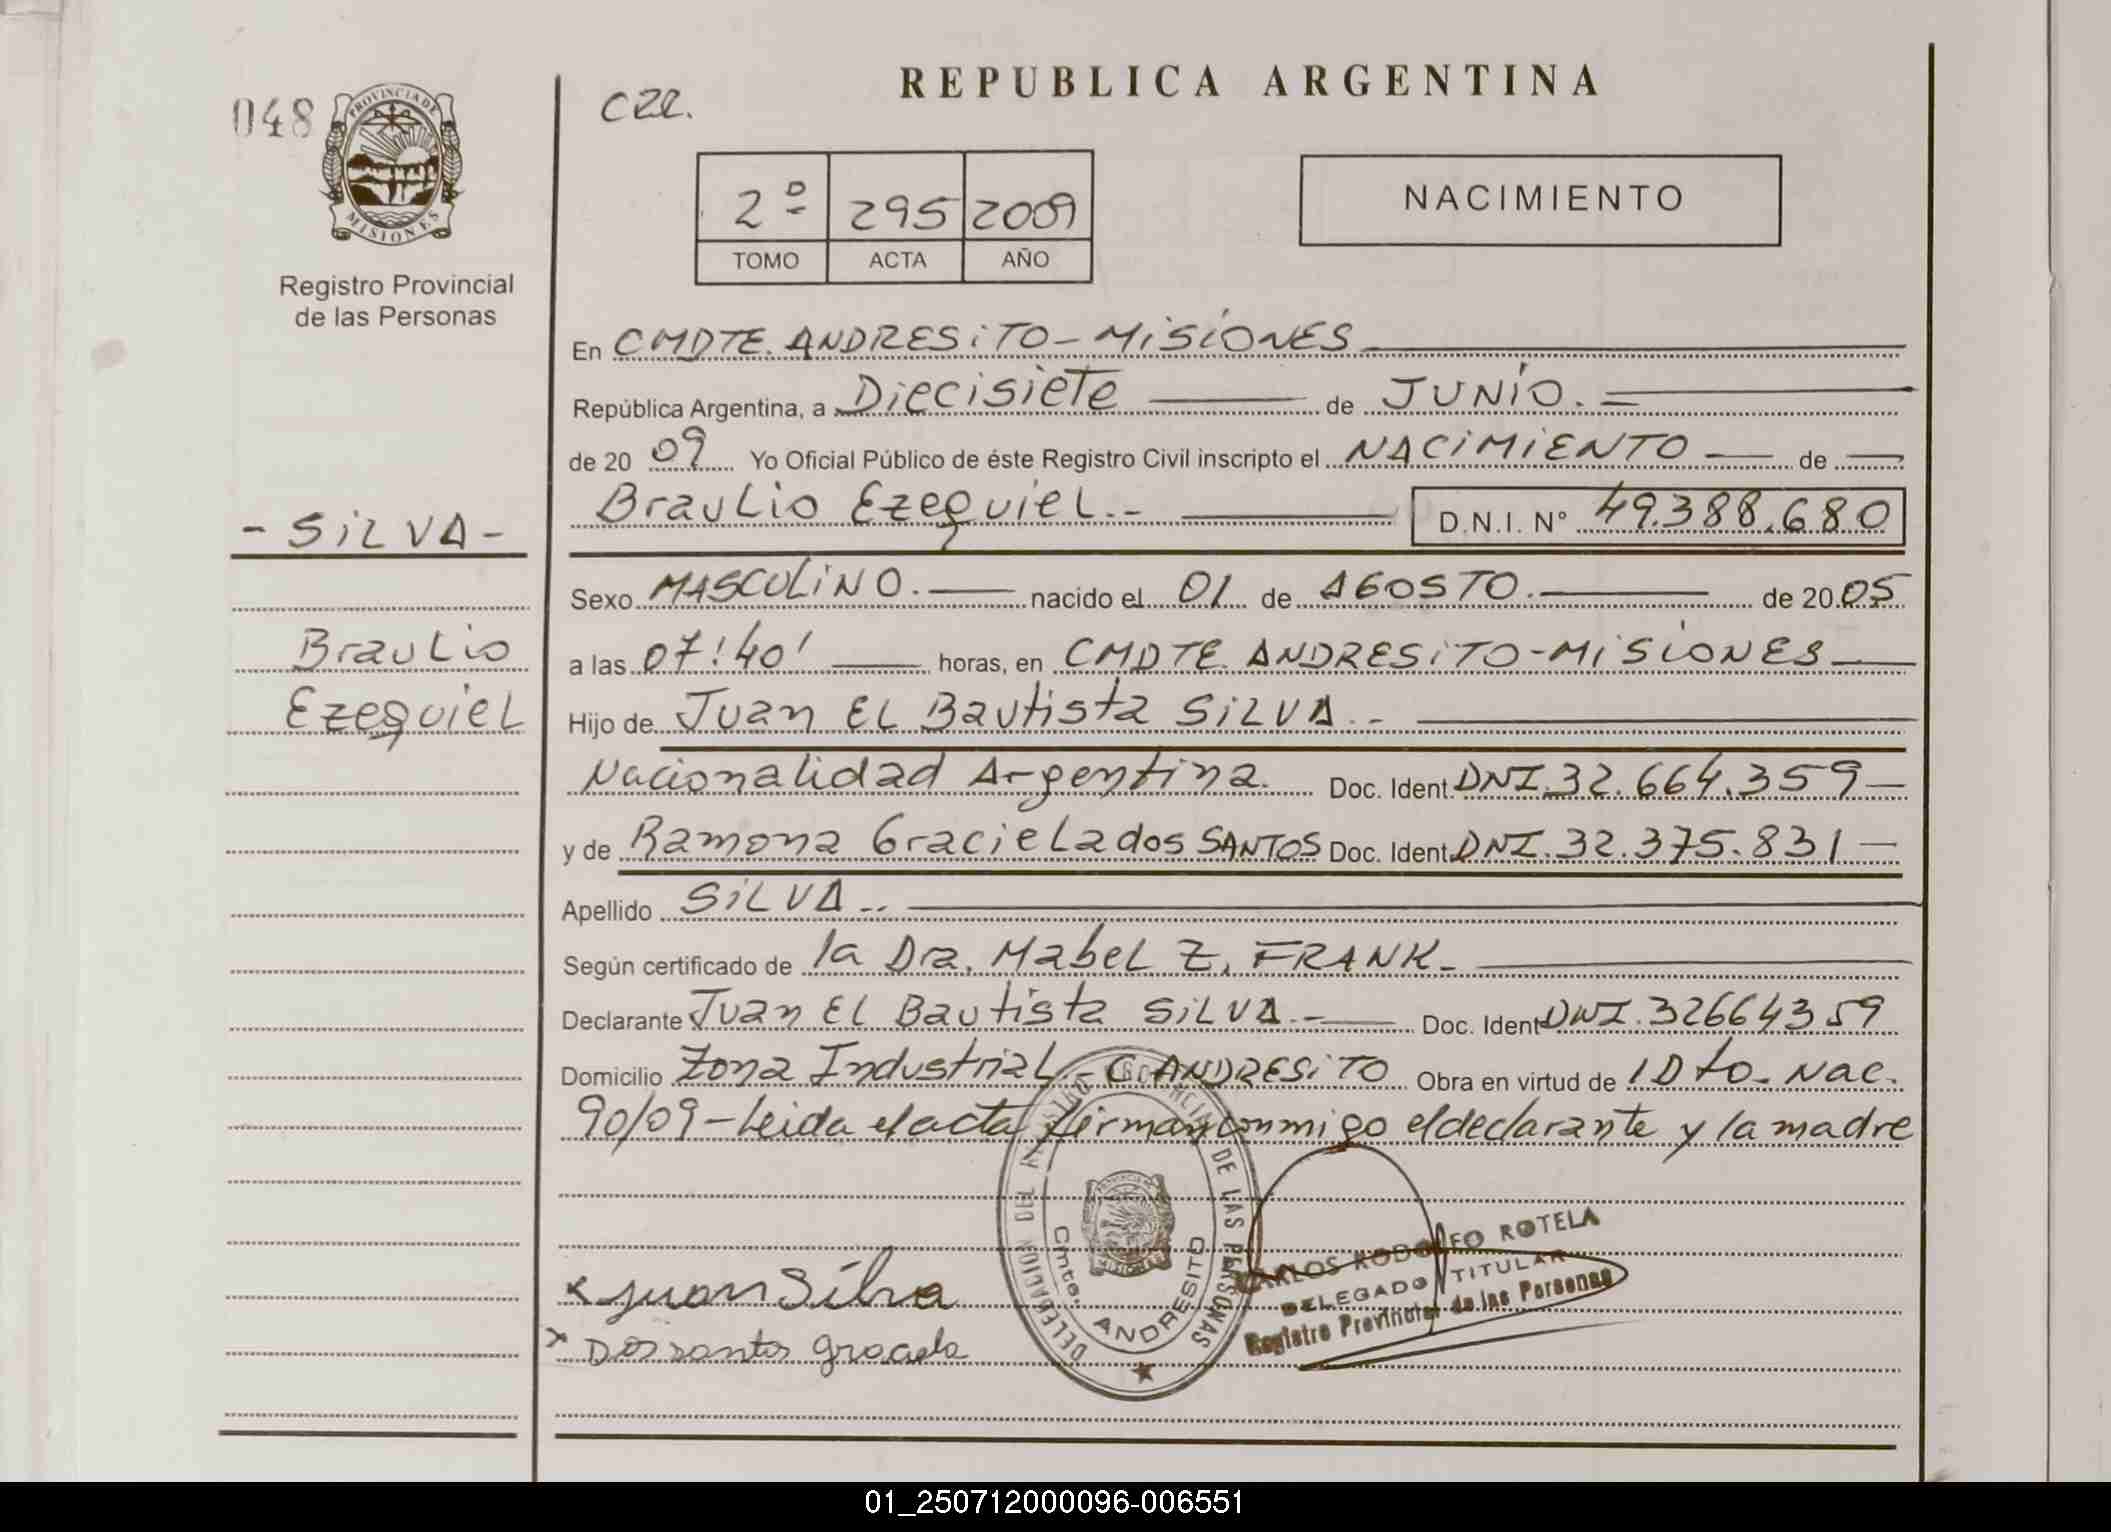 REPUBLICA ARGENTINA
048
PROVINCIA DE
MISIONES
Registro Provincial
de las Personas
2º 295 2009
TOMO ACTA AÑO
NACIMIENTO
En CMDTE. ANDRESiTO - MiSiONES
República Argentina, a Diecisiete de JUNiO. =
de 20 09 Yo Oficial Público de éste Registro Civil inscripto el NACiMiENTO de
Braulio Ezequiel.- D.N.I. Nº 49.388.680
- SiLVA -
Sexo MASCULiNO. nacido el 01 de AGOSTO. de 20 05
Braulio
Ezequiel
a las 07:40' horas, en CMDTE. ANDRESiTO - MiSiONES
Hijo de Juan EL Bautista SiLVA.-
Nacionalidad Argentina. Doc. Ident. DNI.32.664.359-
y de Ramona Graciela dos SANTOS Doc. Ident. DNI.32.375.831-
Apellido SiLVA..
Según certificado de la Dra. Mabel Z. FRANK-
Declarante Juan EL Bautista SiLVA.- Doc. Ident DNI.32664359
Domicilio Zona Industrial - C. ANDRESiTO Obra en virtud de 1 Dto. Nac.
90/09 - Leida el acta firman conmigo el declarante y la madre
DELEGACION DEL REGISTRO PROVINCIAL DE LAS PERSONAS
Cmte. ANDRESITO
CARLOS RODOLFO ROTELA
DELEGADO TITULAR
Registro Provincial de las Personas
x juan Silva
x Dossantos graciela
01_250712000096-006551